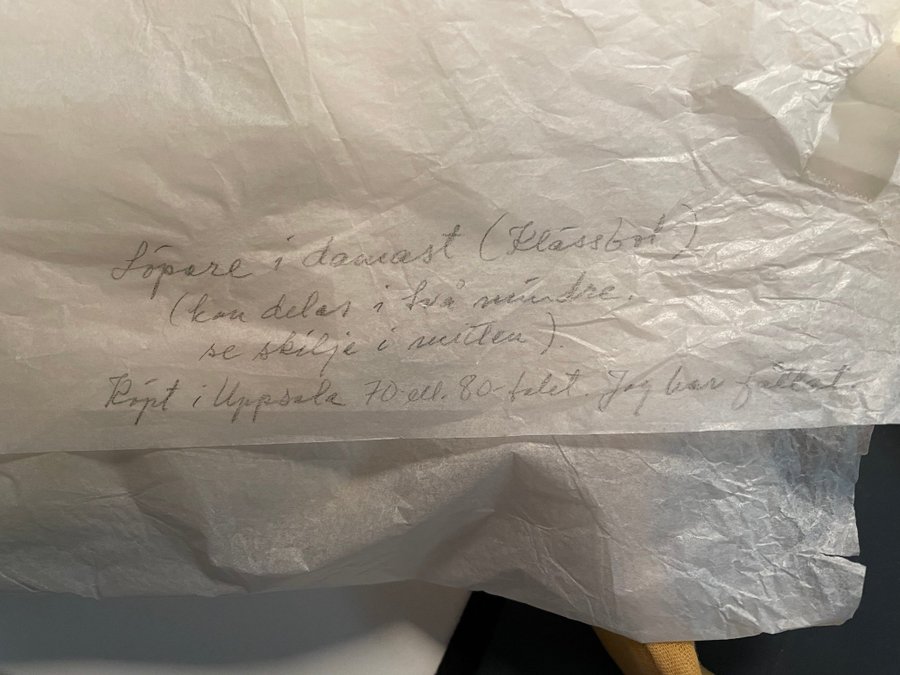 Löpare i damast (Klässbol)
(kan delas i två mindre,
se skilje i mitten).
Köpt i Uppsala 70 ell. 80-talet. Jag har fållat